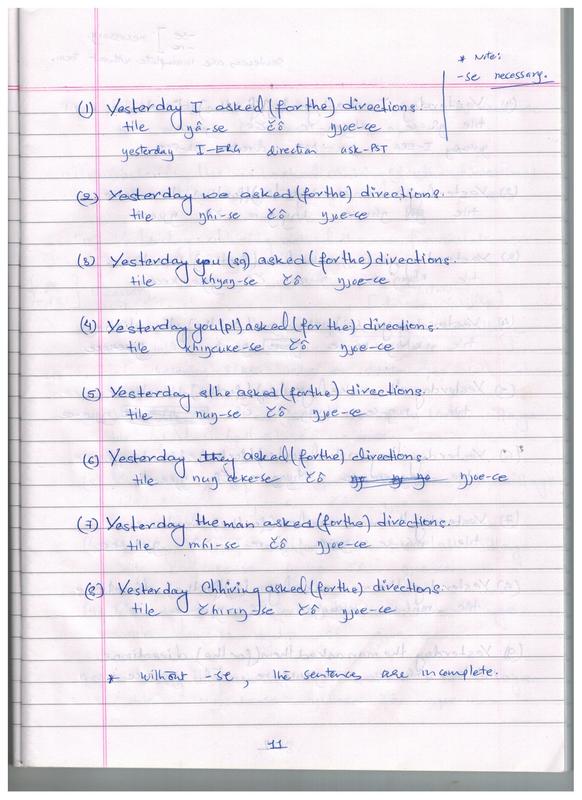 * Note:
-se necessary.
(1) Yesterday I asked (for the) directions.
tile ŋâ-se č̌ô ŋjoe-ce
yesterday I-ERG direction ask-PST
(2) Yesterday we asked (for the) directions.
tile ŋhi-se č̌ô ŋjoe-ce
(3) Yesterday you (sg) asked (for the) directions.
tile khyaŋ-se č̌ô ŋjoe-ce
(4) Yesterday you (pl) asked (for the) directions.
tile khiŋcuke-se č̌ô ŋjoe-ce
(5) Yesterday s/he asked (for the) directions.
tile nuŋ-se č̌ô ŋjoe-ce
(6) Yesterday they asked (for the) directions
tile nuŋ cuke-se č̌ô ŋjoe-ce
(7) Yesterday the man asked (for the) directions.
tile mhi-se č̌ô ŋjoe-ce
(8) Yesterday Chhiring asked (for the) directions.
tile č̌hiriŋ-se č̌ô ŋjoe-ce
* without -se, the sentences are incomplete.
41